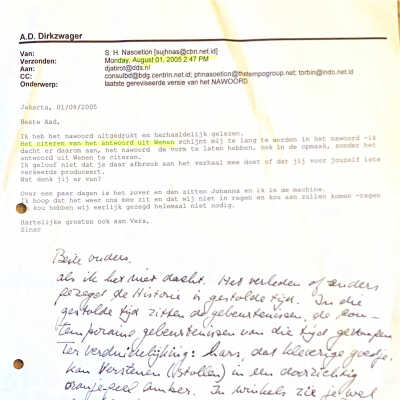 A.D. Dirkzwager
Van: S. H. Nasoetion [sujhnas@cbn.net.id]
Verzonden: Monday, August 01, 2005 2:47 PM
Aan: djabirot@dds.nl
CC: consulbd@bdg.centrin.net.id; phnasoetion@thetempogroup.net; torbin@indo.net.id
Onderwerp: laatste gereviseerde versie van het NAWOORD
Jakarta, 01/09/2005
Beste Aad,
Ik heb het nawoord uitgedrukt en herhaaldelijk gelezen.
Het citeren van het antwoord uit Wenen schijnt mij te lang te worden in het nawoord -ik
dacht er daarom aan, het nawoord de vorm te laten hebben, ook in de opmaak, zonder het
antwoord uit Wenen te citeren.
Ik geloof niet dat je daar afbreuk aan het verhaal mee doet of dat jij voor jouzelf iets
verkeerds produceert.
Wat denk jij er van?
Over een paar dagen is het zover en dan zitten Johanna en ik in de machine.
Ik hoop dat het weer ons mee zit en dat wij niet in regen en kou aan zullen komen -regen
kou hebben wij eerlijk gezegd helemaal niet nodig.
Hartelijke groeten ook aan Vera,
Sinar
Beste ouders.
als ik het niet dacht. Het verleden of anders
gezegd de Historie is gestolde tijd. In die
gestolde tijd zitten de gebeurtenissen, de con-
temporaine gebeurtenissen van die tijd gevangen
Ter verduidelijking: hars, dat kleverige goedje,
kan verstenen (stollen) in een doorzichtig
amber. In winkels zie je wel